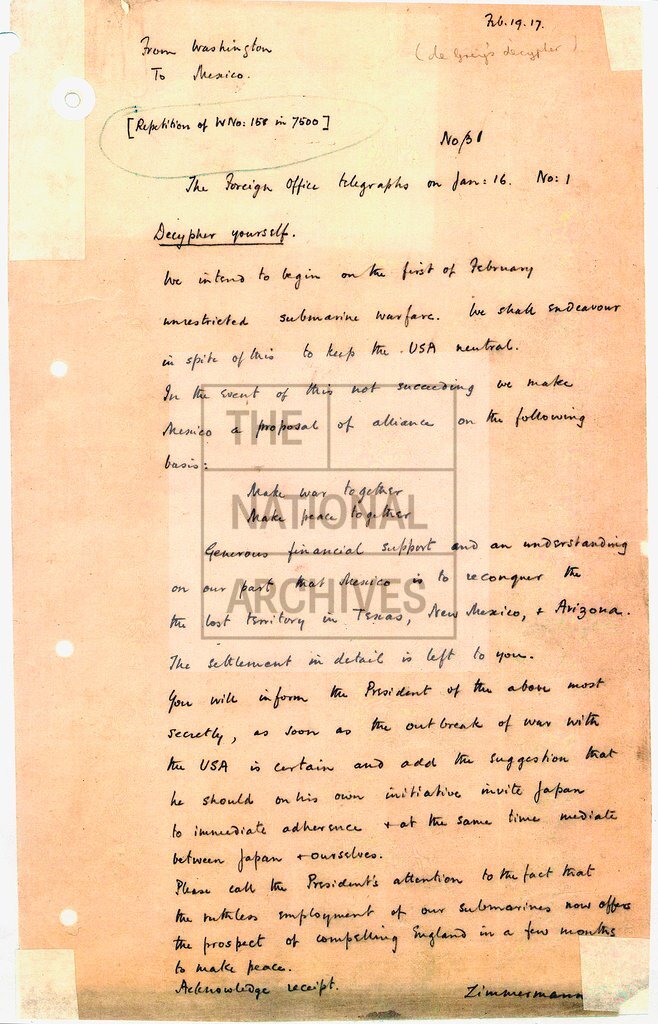 Feb. 19. 17.
(de Grey's decypher).
From Washington
To Mexico.
[Repetition of WNo: 158 in 7500]
No/31
The Foreign Office telegraphs on Jan: 16. No: 1
Decypher yourself.
We intend to begin on the first of February
unrestricted submarine warfare. We shall endeavour
in spite of this to keep the USA neutral.
In the event of this not succeeding we make
Mexico a proposal of alliance on the following
basis:
Make war together
Make peace together
Generous financial support and an understanding
on our part that Mexico is to reconquer the
the lost territory in Texas, New Mexico, + Arizona.
The settlement in detail is left to you.
You will inform the President of the above most
secretly, as soon as the outbreak of war with
the USA is certain and add the suggestion that
he should on his own initiative invite Japan
to immediate adherence + at the same time mediate
between Japan + ourselves.
Please call the President's attention to the fact that
the ruthless employment of our submarines now offers
the prospect of compelling England in a few months
to make peace.
Acknowledge receipt.
Zimmermann
THE
NATIONAL
ARCHIVES